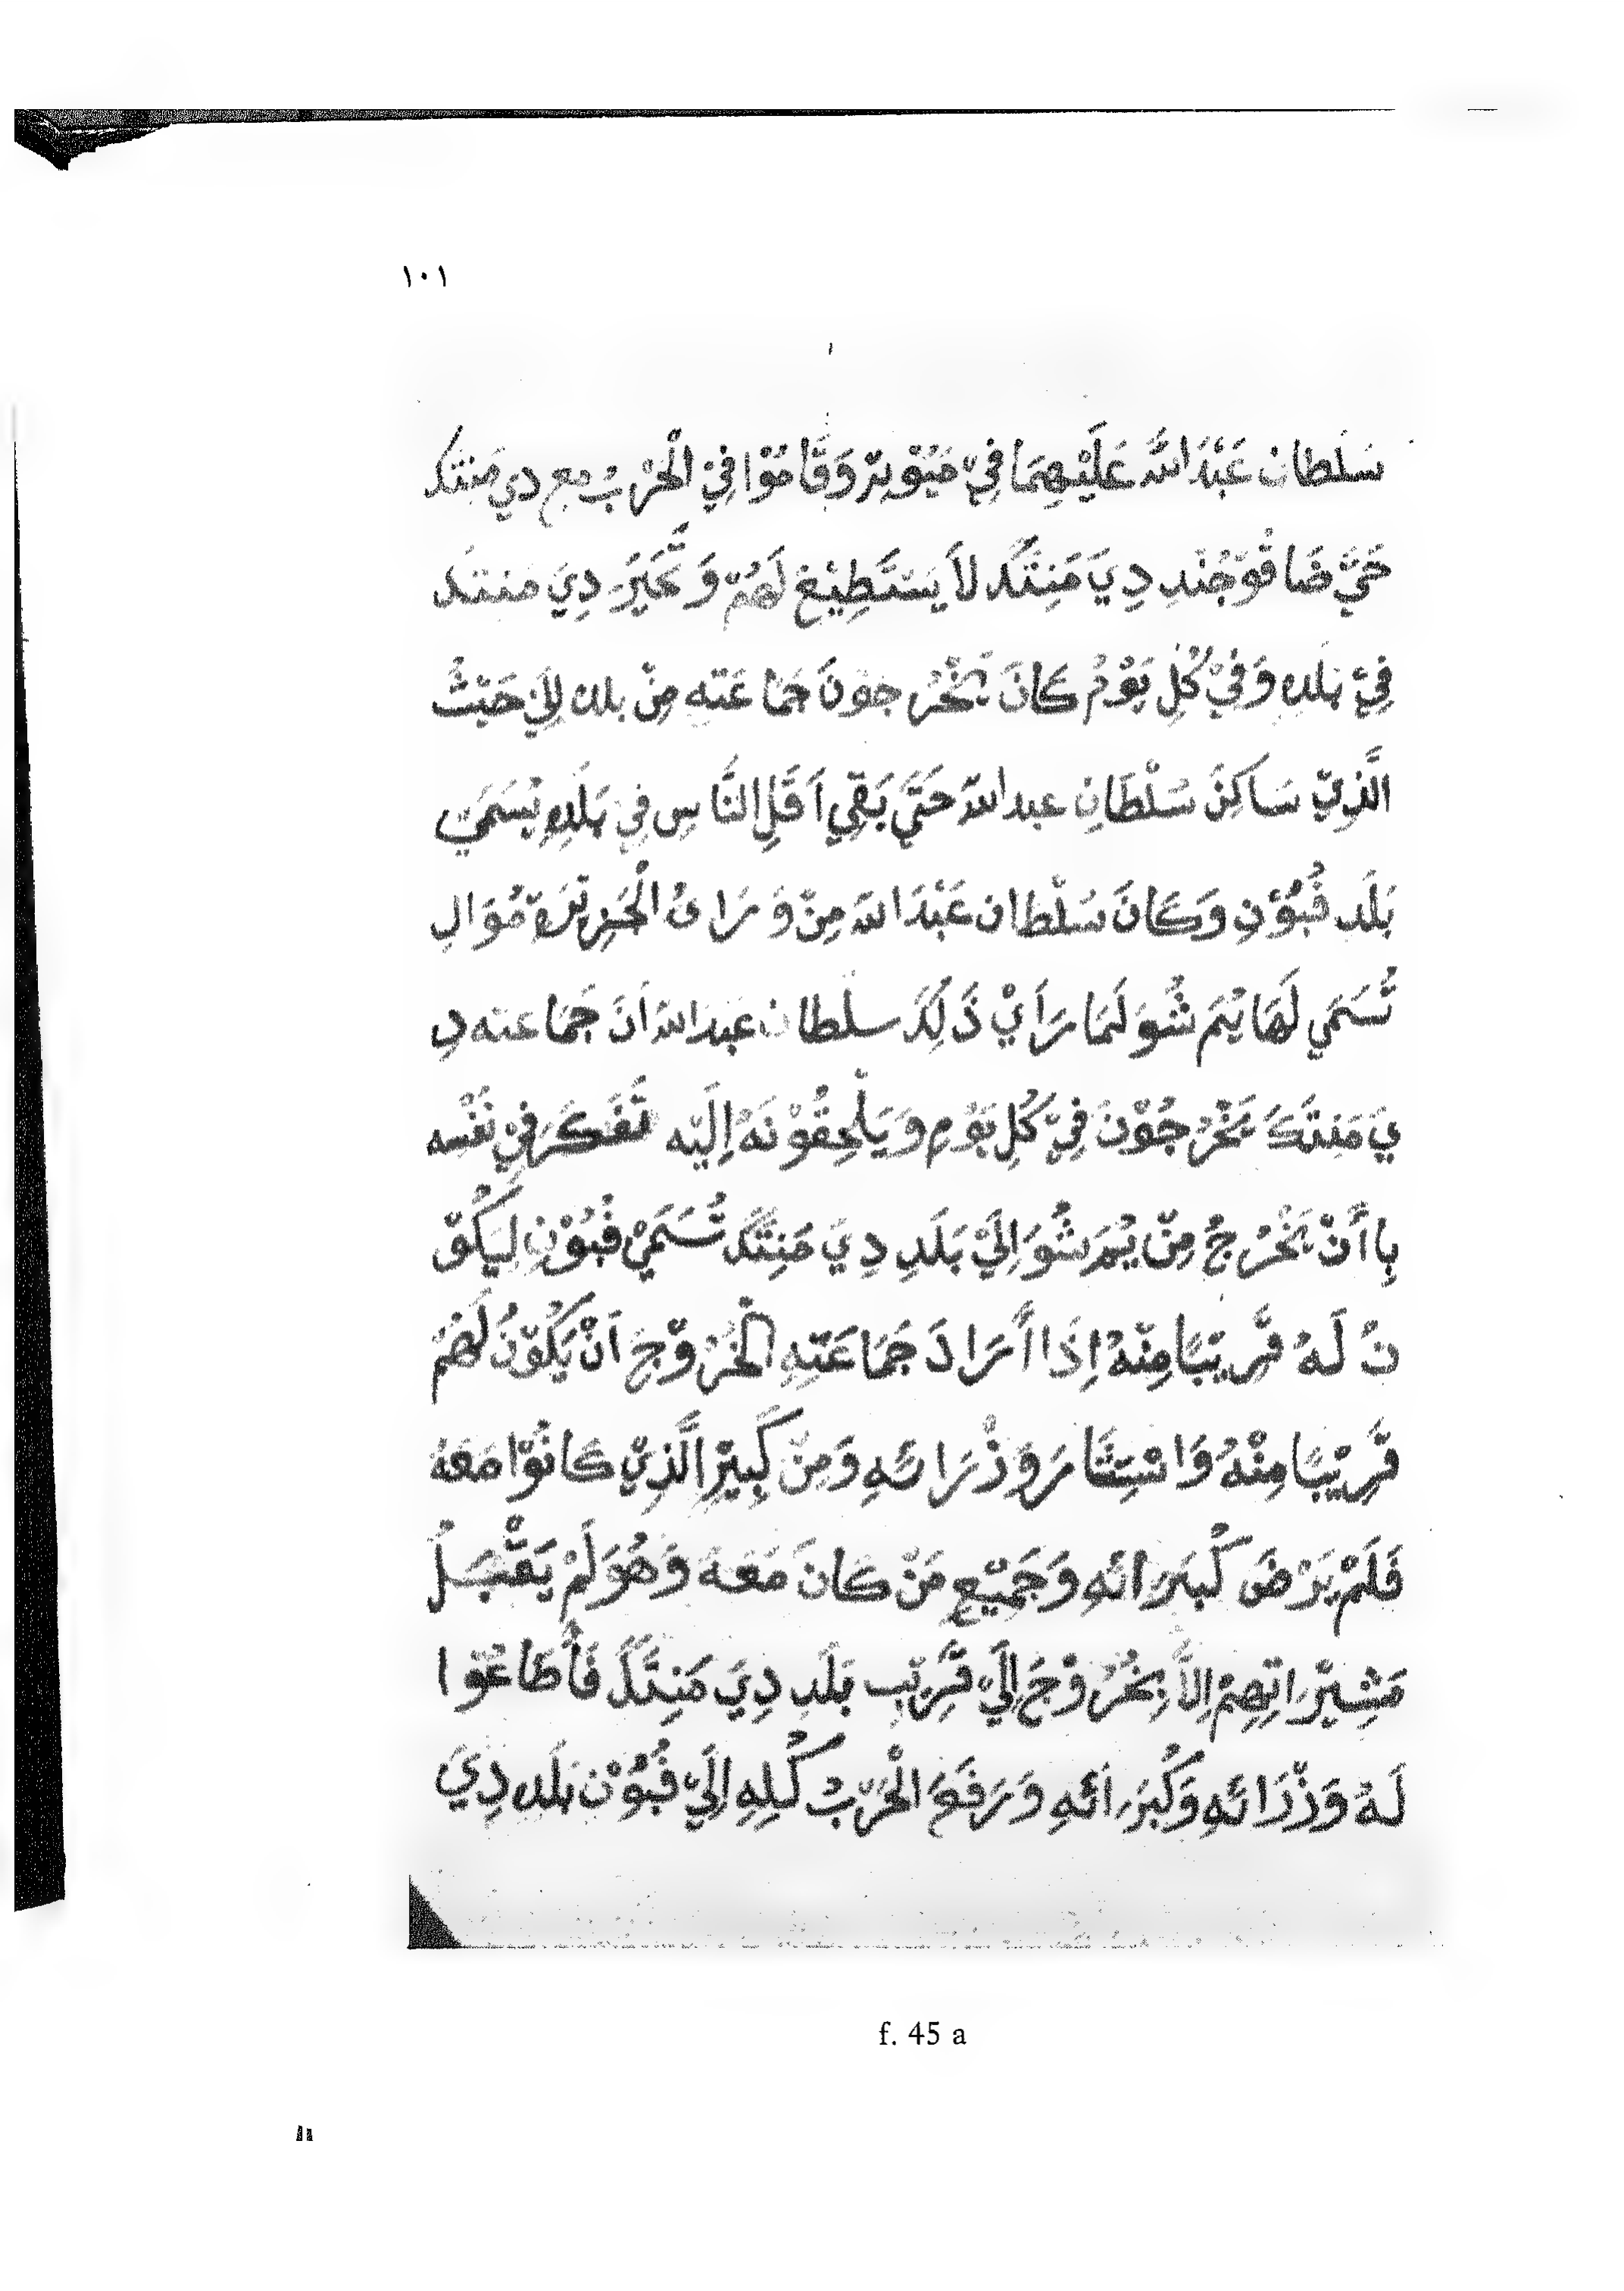 ١٠١
سَلْطان عَبْدَ اللَّه عَلَيْهِمَا فِيْ مَيُوْيِرْ وَقَامُوْا فِيْ الْحَرْبُ مع دي مَنِتَكَ
حَيَّ ضَاقُوْ جُنْدِ دِيَ مَنِتَكَ لاَ يَسْتَطِيْعْ لَهُمْ وَ تَّحَيَرَ دِيَ مَنتك
فِيْ بَلَدِه وَفِيْ كُلِ يَوْمُ كَانَ يَخْرُجُوْنَ جَمَاعَتِه مِنْ بلده اِلَيْ حَيْثُ
الَّذِيْ سَاكِنَ سُلْطَانِ عبد اللّه حَتَّيَ بَقِي اَقَلِ النَّاسِ فِي بَلَدِهِ يُسَمَيَ
بَلَدِ فُبُوْنِ وَكَانَ سُلْطان عَبْدَ اللّه مِنْ وَرَائُ الْجَزِيْرَةْ مُوَالِ
تُسَمَي لَهَا يُمَ شُوَ لَمَا رَأَيْ ذَلِكَ سلْطان عَبْدَ اللّه اَنَ جَمَاعته دِ
يَ مَنِتَكَ يَخْرُجُوْنَ فِيْ كُلِ يَوْمِ وَيَلْحِقُوْنَهُ اِلَيْه تَّفَكَرَ فِيْ نَفْسه
بِاأَنْ يَخْرُجُ مِنْ يُمَ شُوَ اِلَيْ بَلَدِ دِيَ مَنِتَكَ تُسَمَيْ فُبُوْنِ لِيَكُوْ
نُ لَهُ قَرِيْبًا مِنْهُ اِذَا أَرَادَ جَمَاعَتِهِ الْخُرُوْجَ اَنْ يَكُوْنُ لَهُمْ
قَرِيْبًا مِنْهُ وَاسْتِشَارَ وَزْرَائِهِ وَمِنْ كَبِيْرِ الَّذِيْ كَانُوْا مَعَهُ
فَلَمْ يَرْضَ كُبَرَائِهِ وَجَمِيْعِ مَنْ كَانَ مَعَهُ وَهُوَ لَمْ يَقْبَلُ
مَشِيْرَاتِهِمْ اِلاَّ بِخُرُوْجَ اِلَيْ قَرِيْبِ بَلَدِ دِيَ مَنِتَكَ فَأَطَاعُوْا
لَهُ وَزْرَائِهِ وَكُبَرَائِهِ وَرَفَعَ الْحَرْبُ كُلِهِ اِلَيْ فُبُوْن بَلَدِ دِيَ
f. 45 a